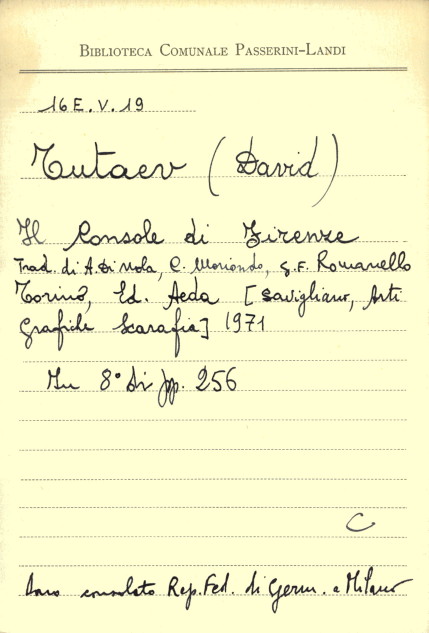 BIBLIOTECA COMUNALE PASSERINI-LANDI
16 E. V. 19
Tutaev (David)
Il Console di Firenze
Trad. di A. Di Nola, C. Moriondo, G. F. Romanello
Torino, Ed. Aeda [Savigliano, Arti
Grafiche Scarafia] 1971
In 8° di pp. 256
C
Dono consolato Rep. Fed. di Germ. a Milano